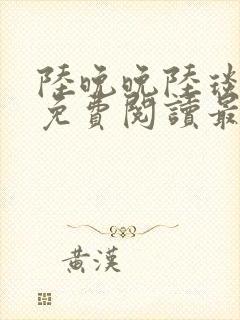 陸晚晚陸琰
免費閱讀最
黃漢